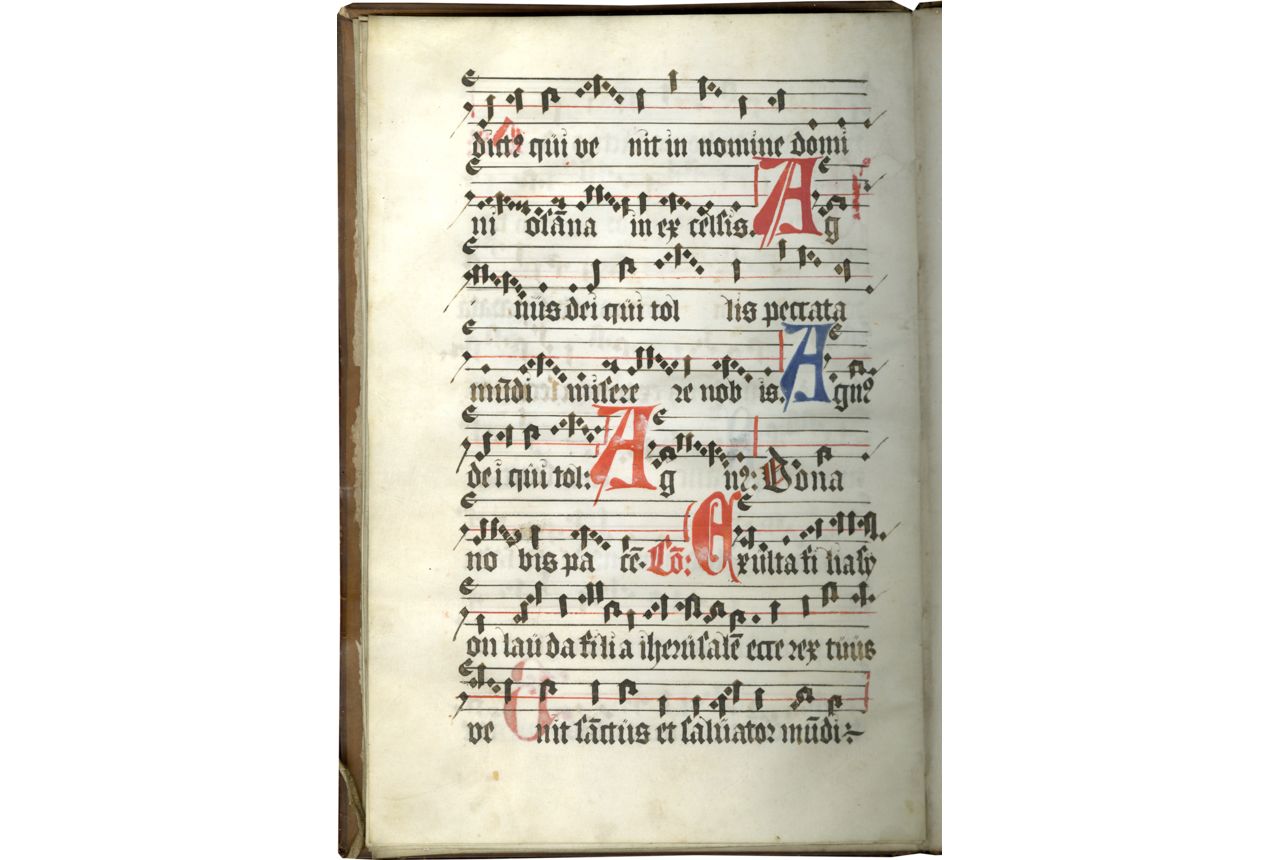 dict⁹ qui ve nit in nomine domi
ni osāna in ex celsis. Ag
nus dei qui tol lis peccata
mūdi misere re nob is. Agn⁹
dei qui tol: Ag n⁹: Dona
no bis pa cē. Cō: Exulta fi lia sy
on lauda filia iherusalē ecce rex tuus
ve nit sāctus et saluator mūdi